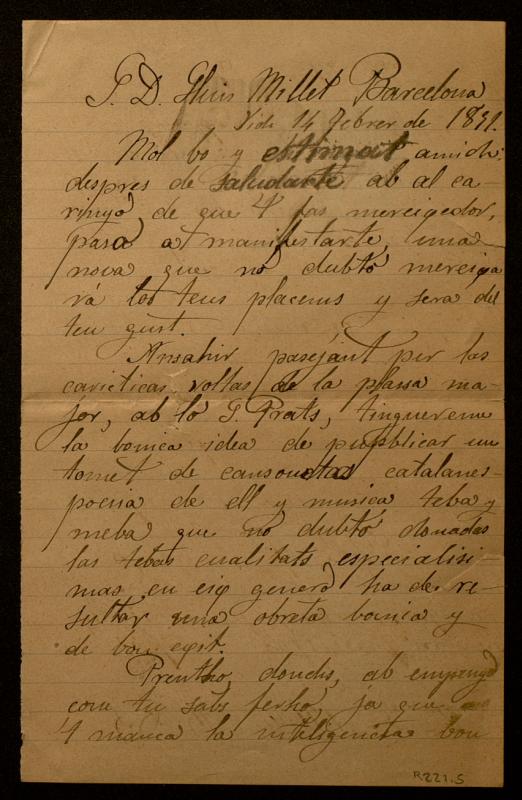 S. D. Lluis Millet Barcelona
Vich 14 Febrer de 1891.
Mol bo y estimat amich:
despres de saludarte ab al ca-
rinyo de que t' fas mereixedor,
paso a manifestarte, una
nova que no dubto mereixe
rá los teus placems y sera del
teu gust.
Ansahir pasejant per las
 voltas de la plassa ma-
jor, ab lo S. Prats, tinguerem
la bonica idea de publicar un
tomet de cansonetas catalanes
poesia de ell y musica teba y
meba que no dubto donadas
las tebas cualitats especialisi-
mas en eix genero ha de re-
sultar una obreta bonica y
de bon exit.
Prentho, donchs, ab empenyo
com tu sabs ferho, ja que no
t' manca la inteligencia bon
R221.5